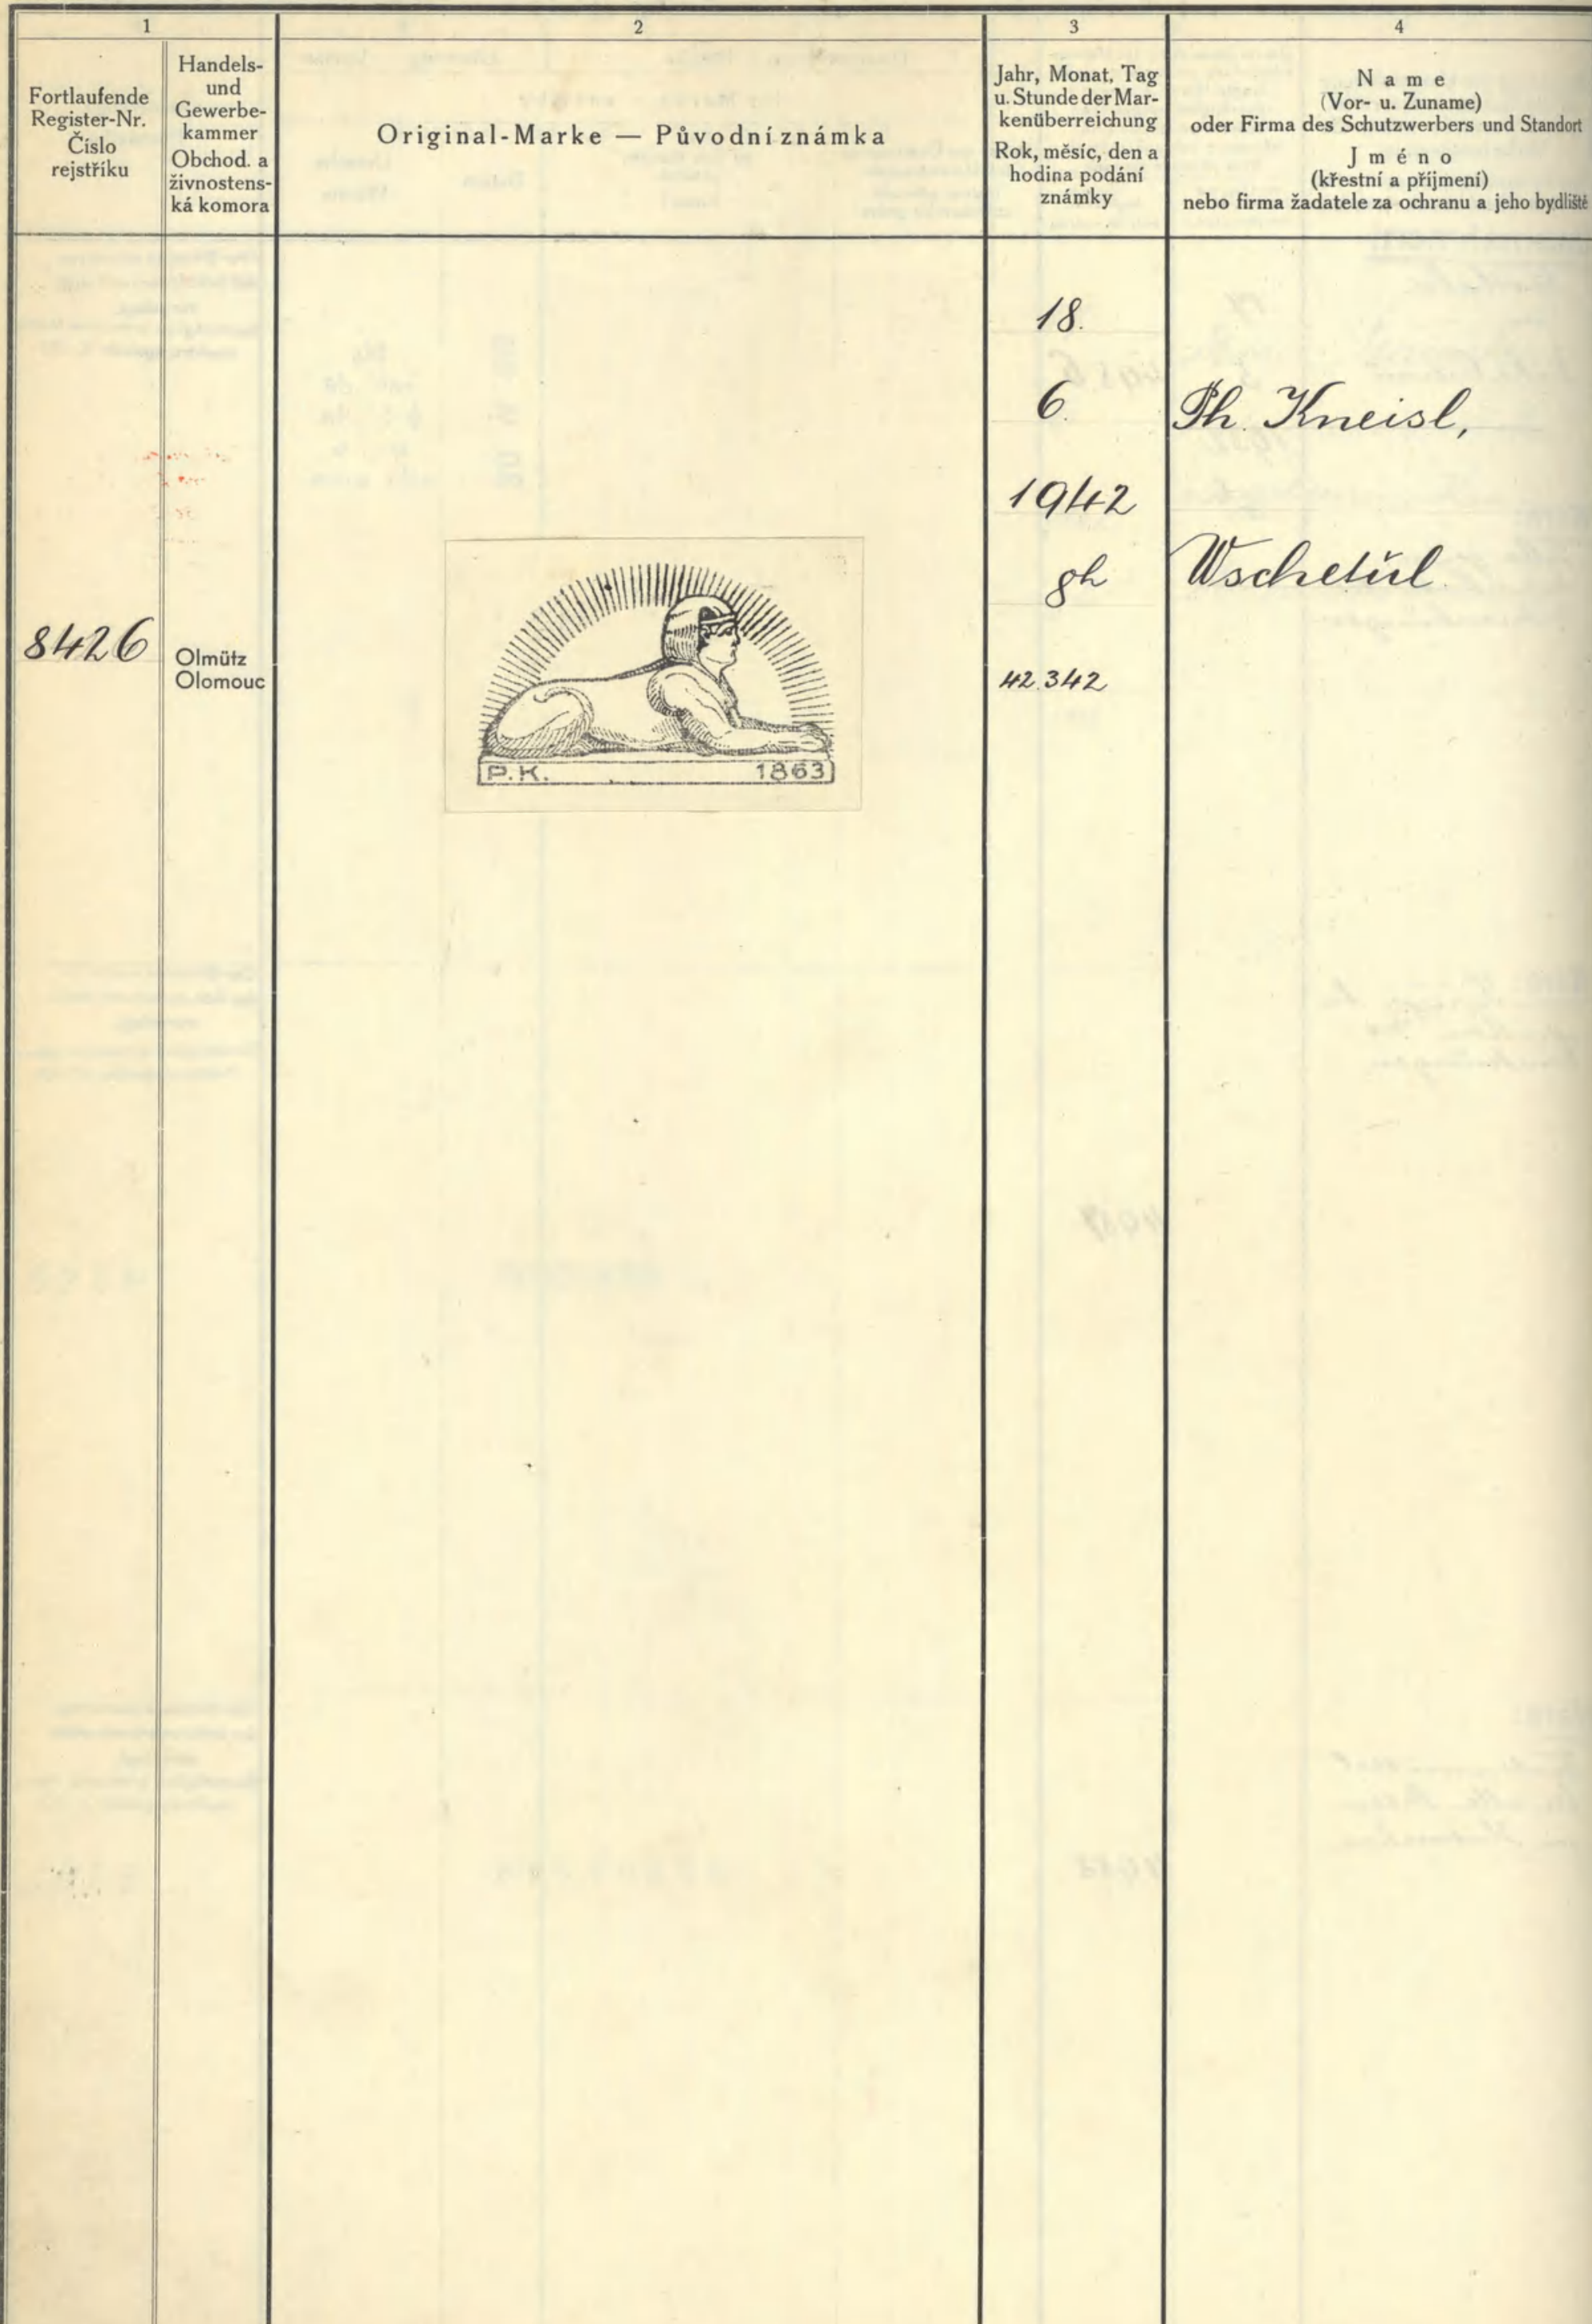 1
2
3
4
Fortlaufende
Register-Nr.
Číslo
rejstříku
Handels-
und
Gewerbe-
kammer
Obchod. a
živnostens-
ká komora
Original-Marke — Původní známka
Jahr, Monat, Tag
u. Stunde der Mar-
kenüberreichung
Rok, měsíc, den a
hodina podání
známky
Name
(Vor- u. Zuname)
oder Firma des Schutzwerbers und Standort
Jméno
(křestní a příjmení)
nebo firma žadatele za ochranu a jeho bydliště
18.
6.
1942
8h
42.342
Ph. Kneisl,
Wschetul.
8426
Olmütz
Olomouc
P.K. 1863